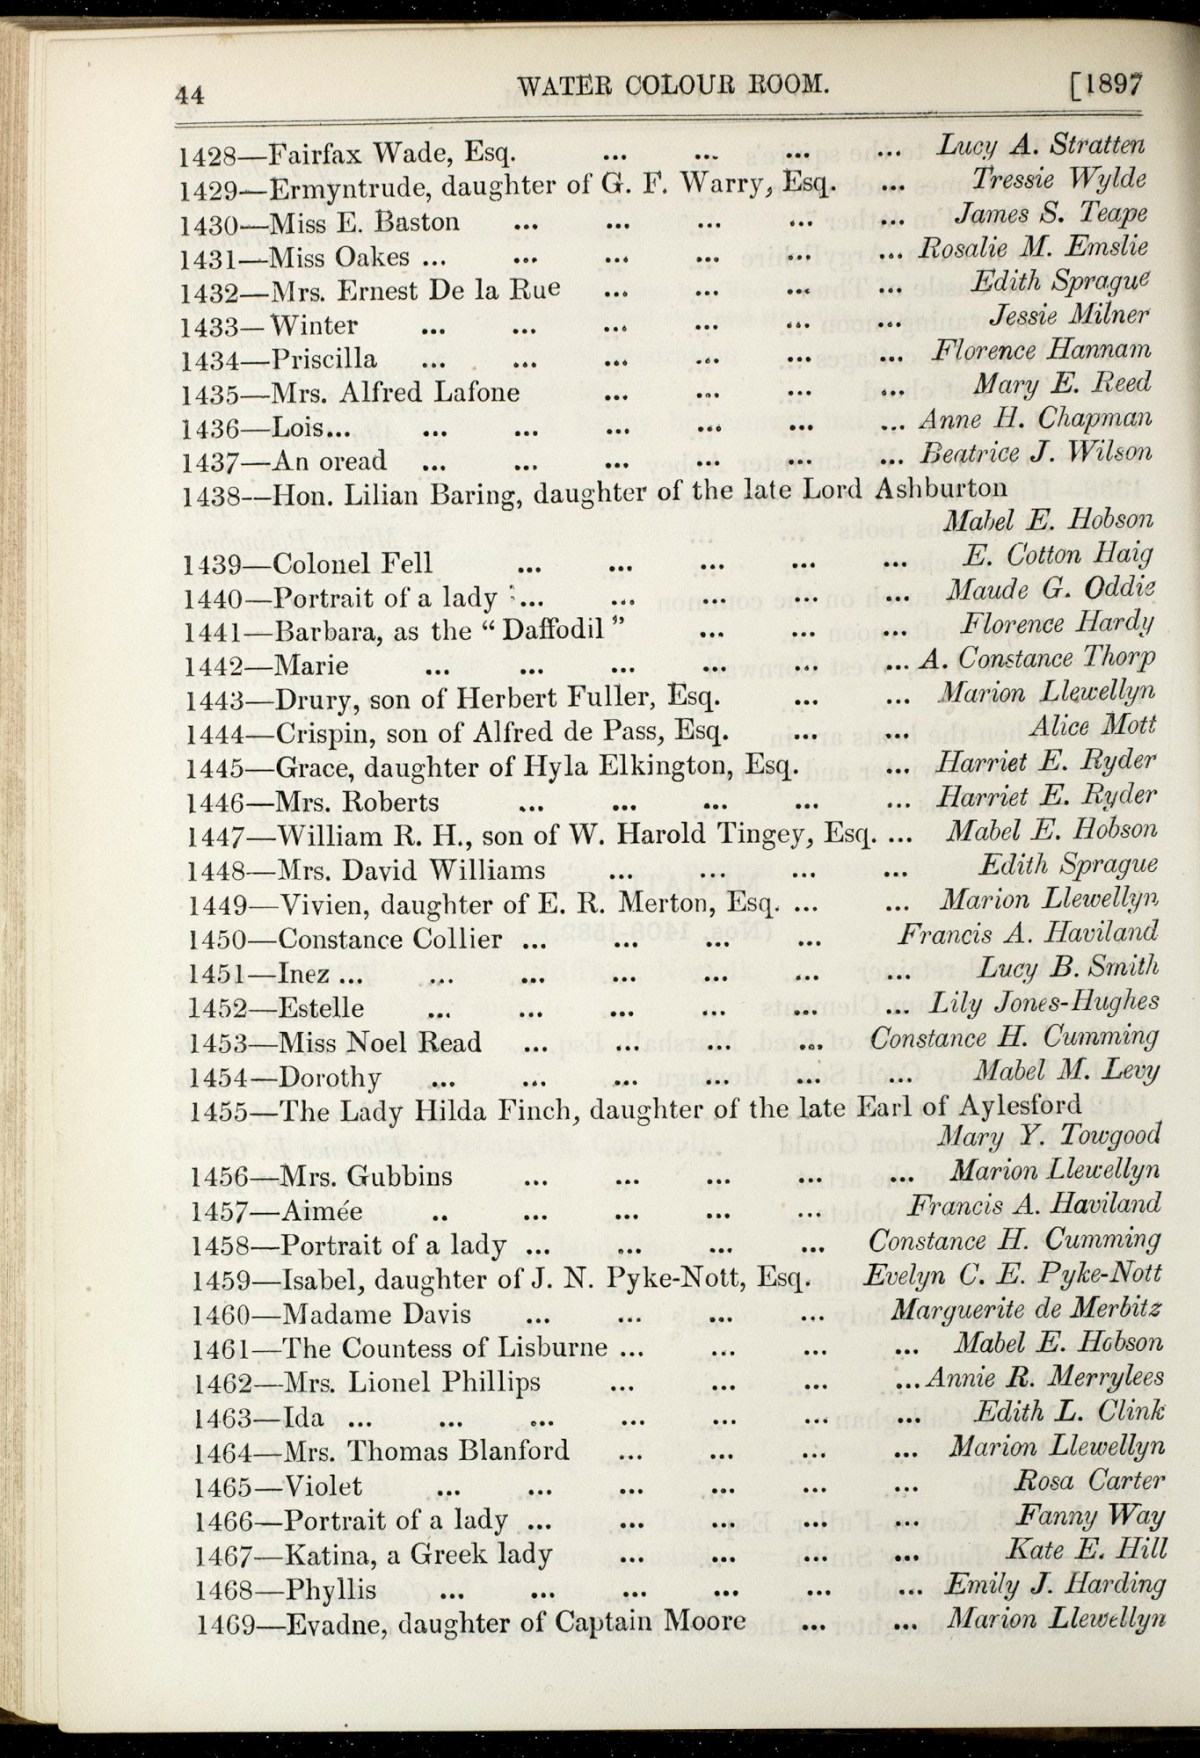 44 WATER COLOUR ROOM. [1897
1428—Fairfax Wade, Esq. ... ... ... ... Lucy A. Stratten
1429—Ermyntrude, daughter of G. F. Warry, Esq. ... Tressie Wylde
1430—Miss E. Baston ... ... ... ... ... James S. Teape
1431—Miss Oakes ... ... ... ... ... ... Rosalie M. Emslie
1432—Mrs. Ernest De la Rue ... ... ... ... Edith Sprague
1433—Winter ... ... ... ... ... ... Jessie Milner
1434—Priscilla ... ... ... ... ... ... Florence Hannam
1435—Mrs. Alfred Lafone ... ... ... ... Mary E. Reed
1436—Lois... ... ... ... ... ... ... Anne H. Chapman
1437—An oread ... ... ... ... ... ... Beatrice J. Wilson
1438—Hon. Lilian Baring, daughter of the late Lord Ashburton
Mabel E. Hobson
1439—Colonel Fell ... ... ... ... ... E. Cotton Haig
1440—Portrait of a lady ... ... ... ... ... Maude G. Oddie
1441—Barbara, as the “Daffodil” ... ... ... Florence Hardy
1442—Marie ... ... ... ... ... ... A. Constance Thorp
1443—Drury, son of Herbert Fuller, Esq. ... ... Marion Llewellyn
1444—Crispin, son of Alfred de Pass, Esq. ... ... Alice Mott
1445—Grace, daughter of Hyla Elkington, Esq. ... Harriet E. Ryder
1446—Mrs. Roberts ... ... ... ... ... Harriet E. Ryder
1447—William R. H., son of W. Harold Tingey, Esq. ... Mabel E. Hobson
1448—Mrs. David Williams ... ... ... ... Edith Sprague
1449—Vivien, daughter of E. R. Merton, Esq. ... ... Marion Llewellyn
1450—Constance Collier ... ... ... ... Francis A. Haviland
1451—Inez ... ... ... ... ... ... ... Lucy B. Smith
1452—Estelle ... ... ... ... ... ... Lily Jones-Hughes
1453—Miss Noel Read ... ... ... ... Constance H. Cumming
1454—Dorothy ... ... ... ... ... ... Mabel M. Levy
1455—The Lady Hilda Finch, daughter of the late Earl of Aylesford
Mary Y. Towgood
1456—Mrs. Gubbins ... ... ... ... ... Marion Llewellyn
1457—Aimée .. ... ... ... ... Francis A. Haviland
1458—Portrait of a lady ... ... ... ... Constance H. Cumming
1459—Isabel, daughter of J. N. Pyke-Nott, Esq. Evelyn C. E. Pyke-Nott
1460—Madame Davis ... ... ... ... Marguerite de Merbitz
1461—The Countess of Lisburne ... ... ... ... Mabel E. Hobson
1462—Mrs. Lionel Phillips ... ... ... ... Annie R. Merrylees
1463—Ida ... ... ... ... ... ... ... Edith L. Clink
1464—Mrs. Thomas Blanford ... ... ... ... Marion Llewellyn
1465—Violet ... ... ... ... ... ... Rosa Carter
1466—Portrait of a lady ... ... ... ... ... Fanny Way
1467—Katina, a Greek lady ... ... ... ... Kate E. Hill
1468—Phyllis ... ... ... ... ... ... Emily J. Harding
1469—Evadne, daughter of Captain Moore ... ... Marion Llewellyn